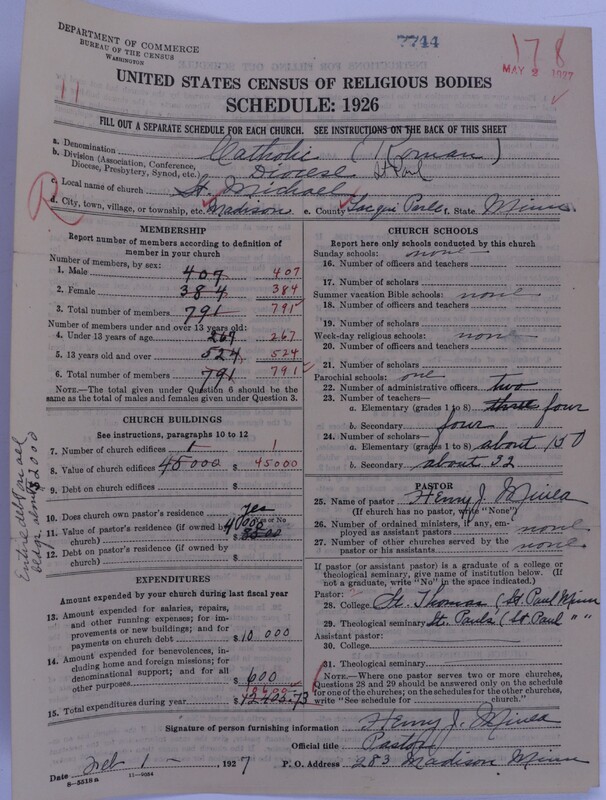 DEPARTMENT OF COMMERCE
BUREAU OF THE CENSUS
WASHINGTON
7744
178
MAY 2 1927
11
UNITED STATES CENSUS OF RELIGIOUS BODIES
SCHEDULE: 1926
FILL OUT A SEPARATE SCHEDULE FOR EACH CHURCH. SEE INSTRUCTIONS ON THE BACK OF THIS SHEET
a. Denomination Catholic (Roman)
b. Division (Association, Conference, Diocese, Presbytery, Synod, etc.) Diocese St Paul
c. Local name of church St. Michael
R
d. City, town, village, or township, etc. Madison e. County Lacqui Parle f. State Minn.
MEMBERSHIP
Report number of members according to definition of member in your church
Number of members, by sex:
1. Male 407 407
2. Female 384 384
3. Total number of members 791 791
Number of members under and over 13 years old:
4. Under 13 years of age 267 267
5. 13 years old and over 524 524
6. Total number of members 791 791
NOTE.—The total given under Question 6 should be the same as the total of males and females given under Question 3.
CHURCH BUILDINGS
See instructions, paragraphs 10 to 12
7. Number of church edifices 1 1
8. Value of church edifices 45000 $ 45000
9. Debt on church edifices $
10. Does church own pastor's residence Yes
Yes or No
11. Value of pastor's residence (if owned by church) 4000 $
12. Debt on pastor's residence (if owned by church) $
Entire debt on all
$2000
EXPENDITURES
Amount expended by your church during last fiscal year
13. Amount expended for salaries, repairs, and other running expenses; for improvements or new buildings; and for payments on church debt $ 10 000
14. Amount expended for benevolences, including home and foreign missions; for denominational support; and for all other purposes $ 600
15. Total expenditures during year $ 12405.73
CHURCH SCHOOLS
Report here only schools conducted by this church
Sunday schools: none
16. Number of officers and teachers
17. Number of scholars
Summer vacation Bible schools: none
18. Number of officers and teachers
19. Number of scholars
Week-day religious schools: none
20. Number of officers and teachers
21. Number of scholars
Parochial schools: one
22. Number of administrative officers two
23. Number of teachers—
a. Elementary (grades 1 to 8) three four
b. Secondary four
24. Number of scholars—
a. Elementary (grades 1 to 8) about 150
b. Secondary about 32
PASTOR
25. Name of pastor Henry J. Minea
(If church has no pastor, write "None")
26. Number of ordained ministers, if any, employed as assistant pastors none
27. Number of other churches served by the pastor or his assistants none
If pastor (or assistant pastor) is a graduate of a college or theological seminary, give name of institution below. (If not a graduate, write "No" in the space indicated.)
Pastor:
28. College St. Thomas (St. Paul Minn
29. Theological seminary St. Pauls (St. Paul " "
Assistant pastor:
30. College
31. Theological seminary
NOTE.—Where one pastor serves two or more churches, Questions 28 and 29 should be answered only on the schedule for one of the churches; on the schedules for the other churches, write "See schedule for church."
Signature of person furnishing information Henry J. Minea
Official title Pastor
Date Feb 1 - 1927 P. O. Address 283 Madison Minn
8-5518a 11-9054